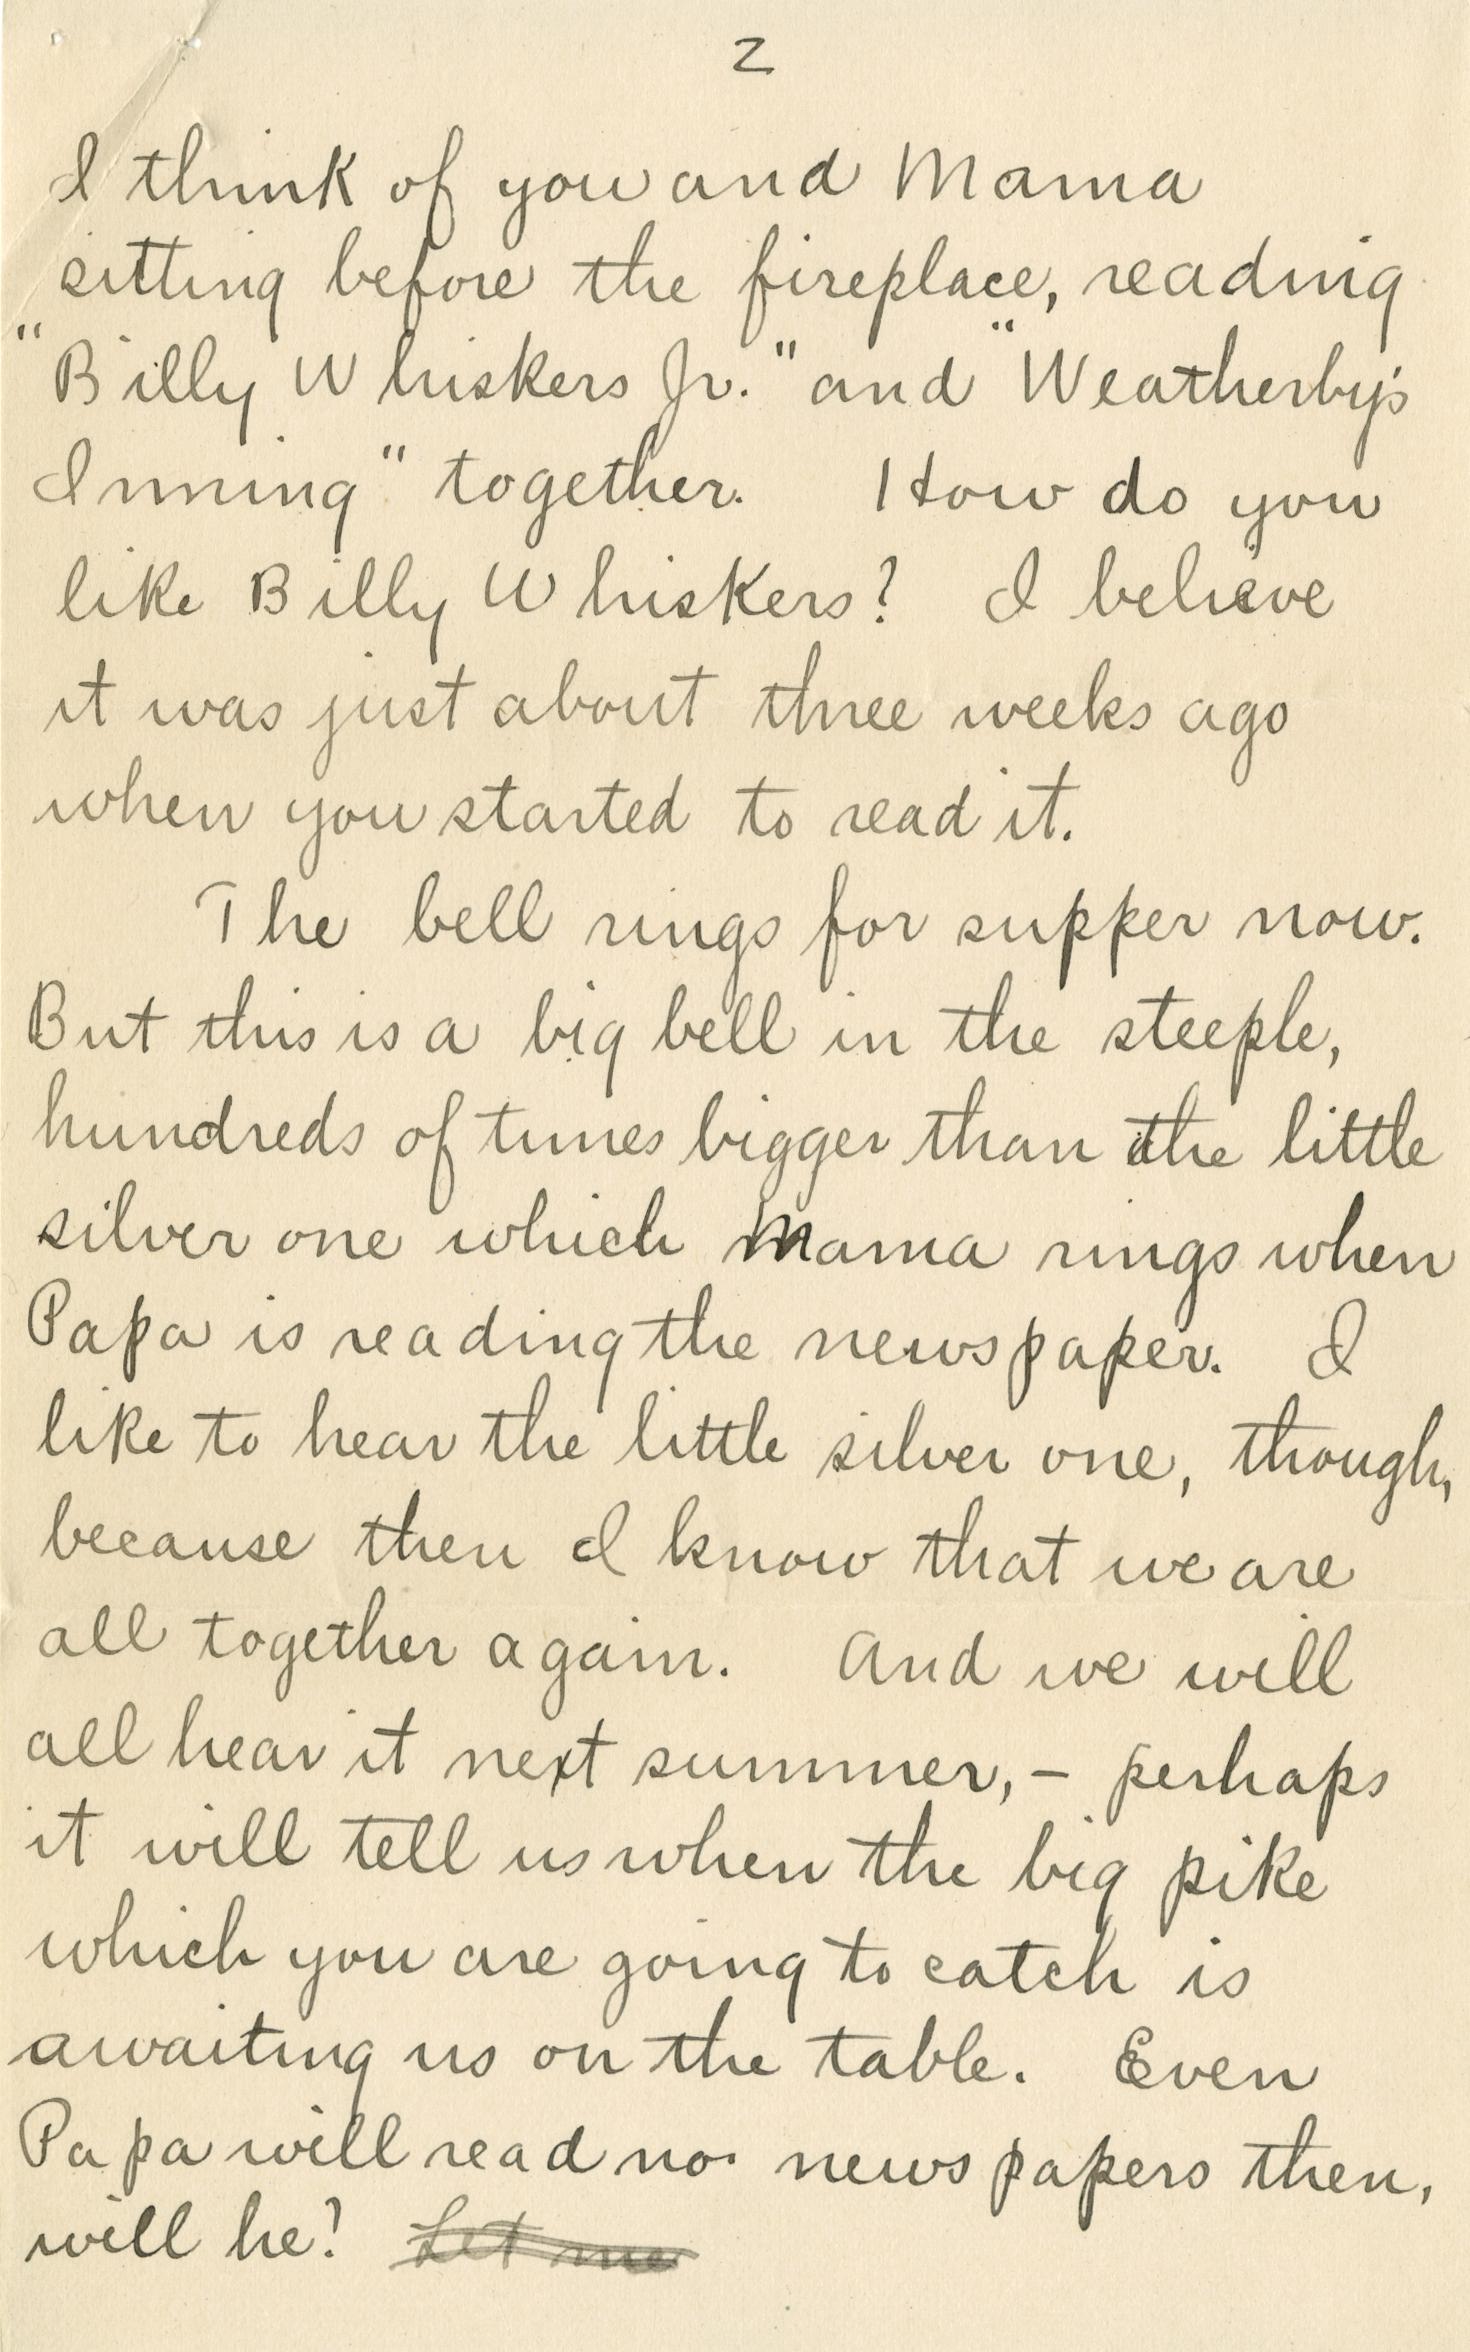 2
I think of you and Mama
sitting before the fireplace, reading
"Billy Whiskers Jr." and "Weatherby's
Inning" together. How do you
like Billy Whiskers? I believe
it was just about three weeks ago
when you started to read it.
The bell rings for supper now.
But this is a big bell in the steeple,
hundreds of times bigger than the little
silver one which Mama rings when
Papa is reading the newspaper. I
like to hear the little silver one, though,
because then I know that we are
all together again. And we will
all hear it next summer, – perhaps
it will tell us when the big pike
which you are going to catch is
awaiting us on the table. Even
Papa will read no newspapers then,
will he? Let me